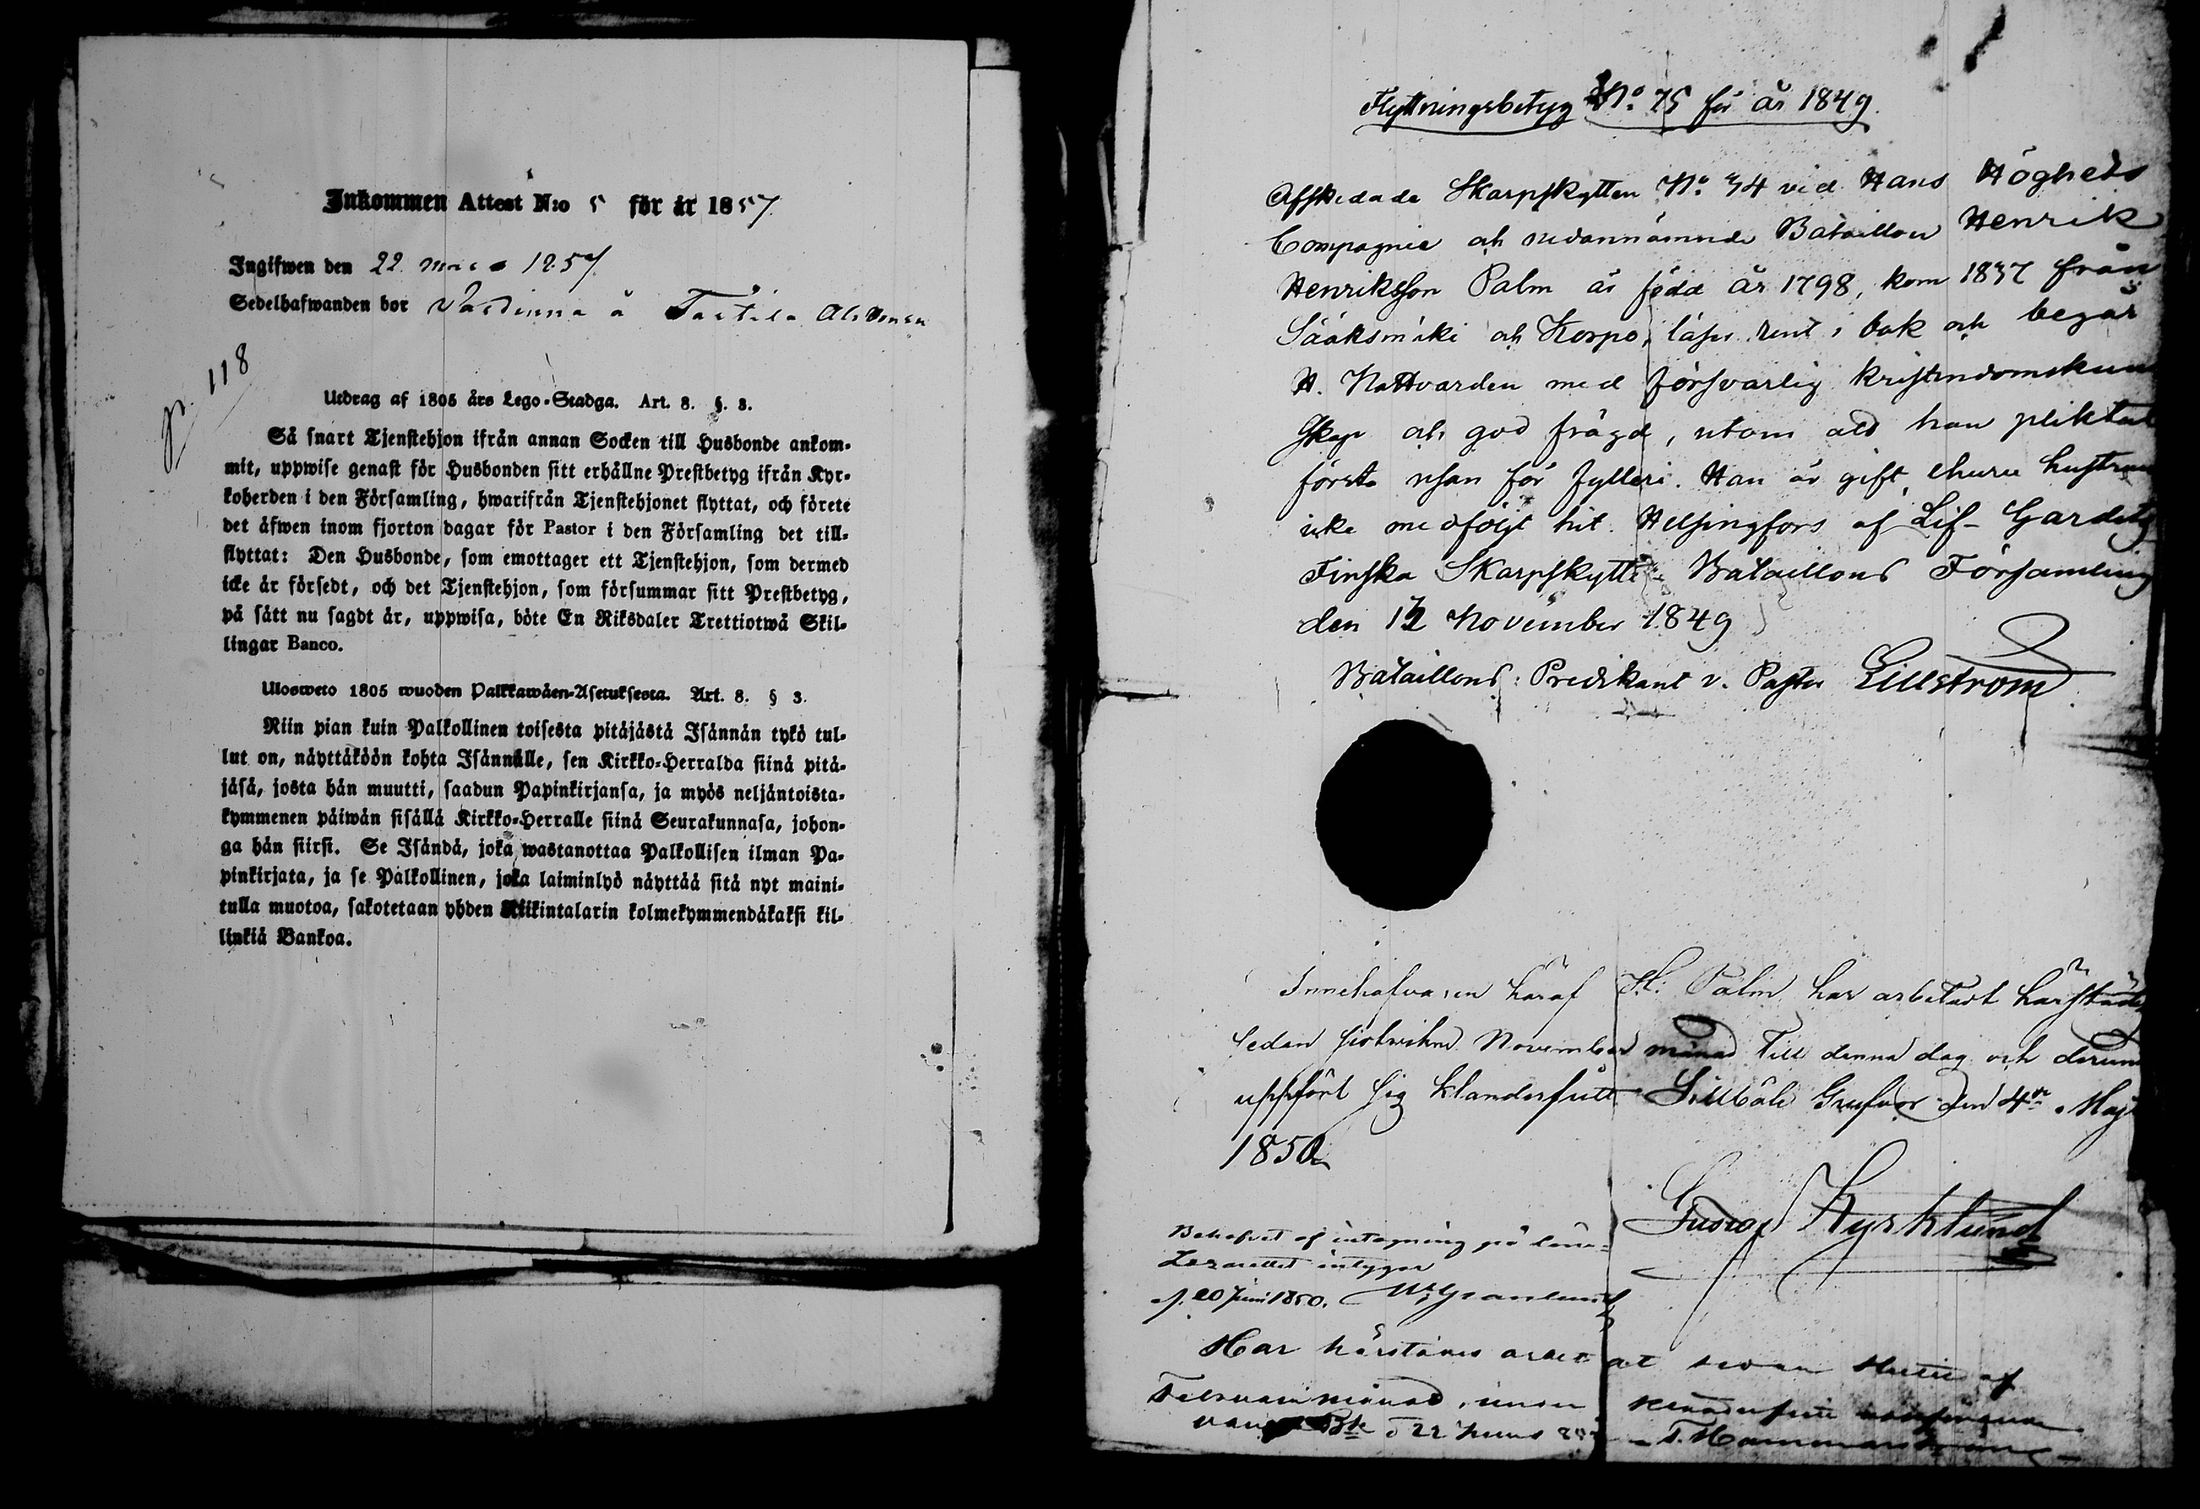 Inkommen Attest N:o 5 för år 1857.
Ingifwen den 22 1857
Sedelhafwanden bor å
p. 118
Utdrag af 1805 års Lego-Stadga. Art. 8. §. 3.
Så snart Tjenstehjon ifrån annan Socken till Husbonde ankom-
mit, uppwise genast för Husbonden sitt erhållne Prestbetyg ifrån Kyr-
koherden i den Församling, hwarifrån Tjenstehjonet flyttat, och förete
det äfwen inom fjorton dagar för Pastor i den Församling det till-
flyttat: Den Husbonde, som emottager ett Tjenstehjon, som dermed
icke är försedt, och det Tjenstehjon, som försummar sitt Prestbetyg,
på sätt nu sagdt är, uppwisa, böte En Riksdaler Trettiotwå Skil-
lingar Banco.
Ulosweto 1805 wuoden Palkkawäen-Asetuksesta. Art. 8. § 3.
Niin pian kuin Palkollinen toisesta pitäjästä Isännän tykö tul-
lut on, näyttäköön kohta Isännälle, sen Kirkko-Herralda siinä pitä-
jäsä, josta hän muutti, saadun Papinkirjansa, ja myös neljäntoista-
kymmenen päiwän sisällä Kirkko-Herralle siinä Seurakunnasa, johon-
ga hän siirsi. Se Isändä, joka wastanottaa Palkollisen ilman Pa-
pinkirjata, ja se Palkollinen, joka laiminlyö näyttää sitä nyt maini-
tulla muotoa, sakotetaan yhden Riikintalarin kolmekymmendäkaksi kil-
linkiä Bankoa.
Flyttningsbetyg No. 75 för år 1849.
Afskedade Skarpskytten No. 34 vid Hans Högheds
Compagnie och nedannämnde Bataillon Henrik
Henriksson Palm är född år 1798, kom 1837 från
Sääksmäki och Korpo, läser rent i bok och begår
H. Nattvarden med försvarlig kristendomskun
skap och god frägd, utom att han pliktat
första resan för fylleri. Han är gift, churu hustrun
icke medföljt hit. Helsingfors af Lif-Gardets
Finska Skarpskytte Bataillons Församling
den 12 November 1849
Bataillons: Predikant v. Pastor Lillström
Innehafvaren häraf H: Palm har arbetadt härstädes
sedan sistvikne November månad till denna dag och derun
uppfört sig klanderfritt Sillböle Grufvor den 4de Maj
1850
Gustaf Kyrklund
Behofvet af intagning på läns-
Lazarettet intygar
20 Juni 1850. Granlund
Har härstädes arbetat sedan slutet af
Februari månad, under
22 Juni